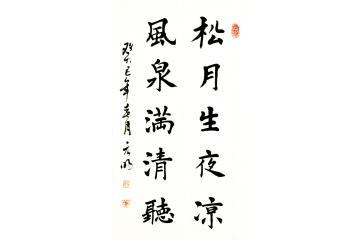 松月生夜凉
風泉満清聽
癸巳年春月